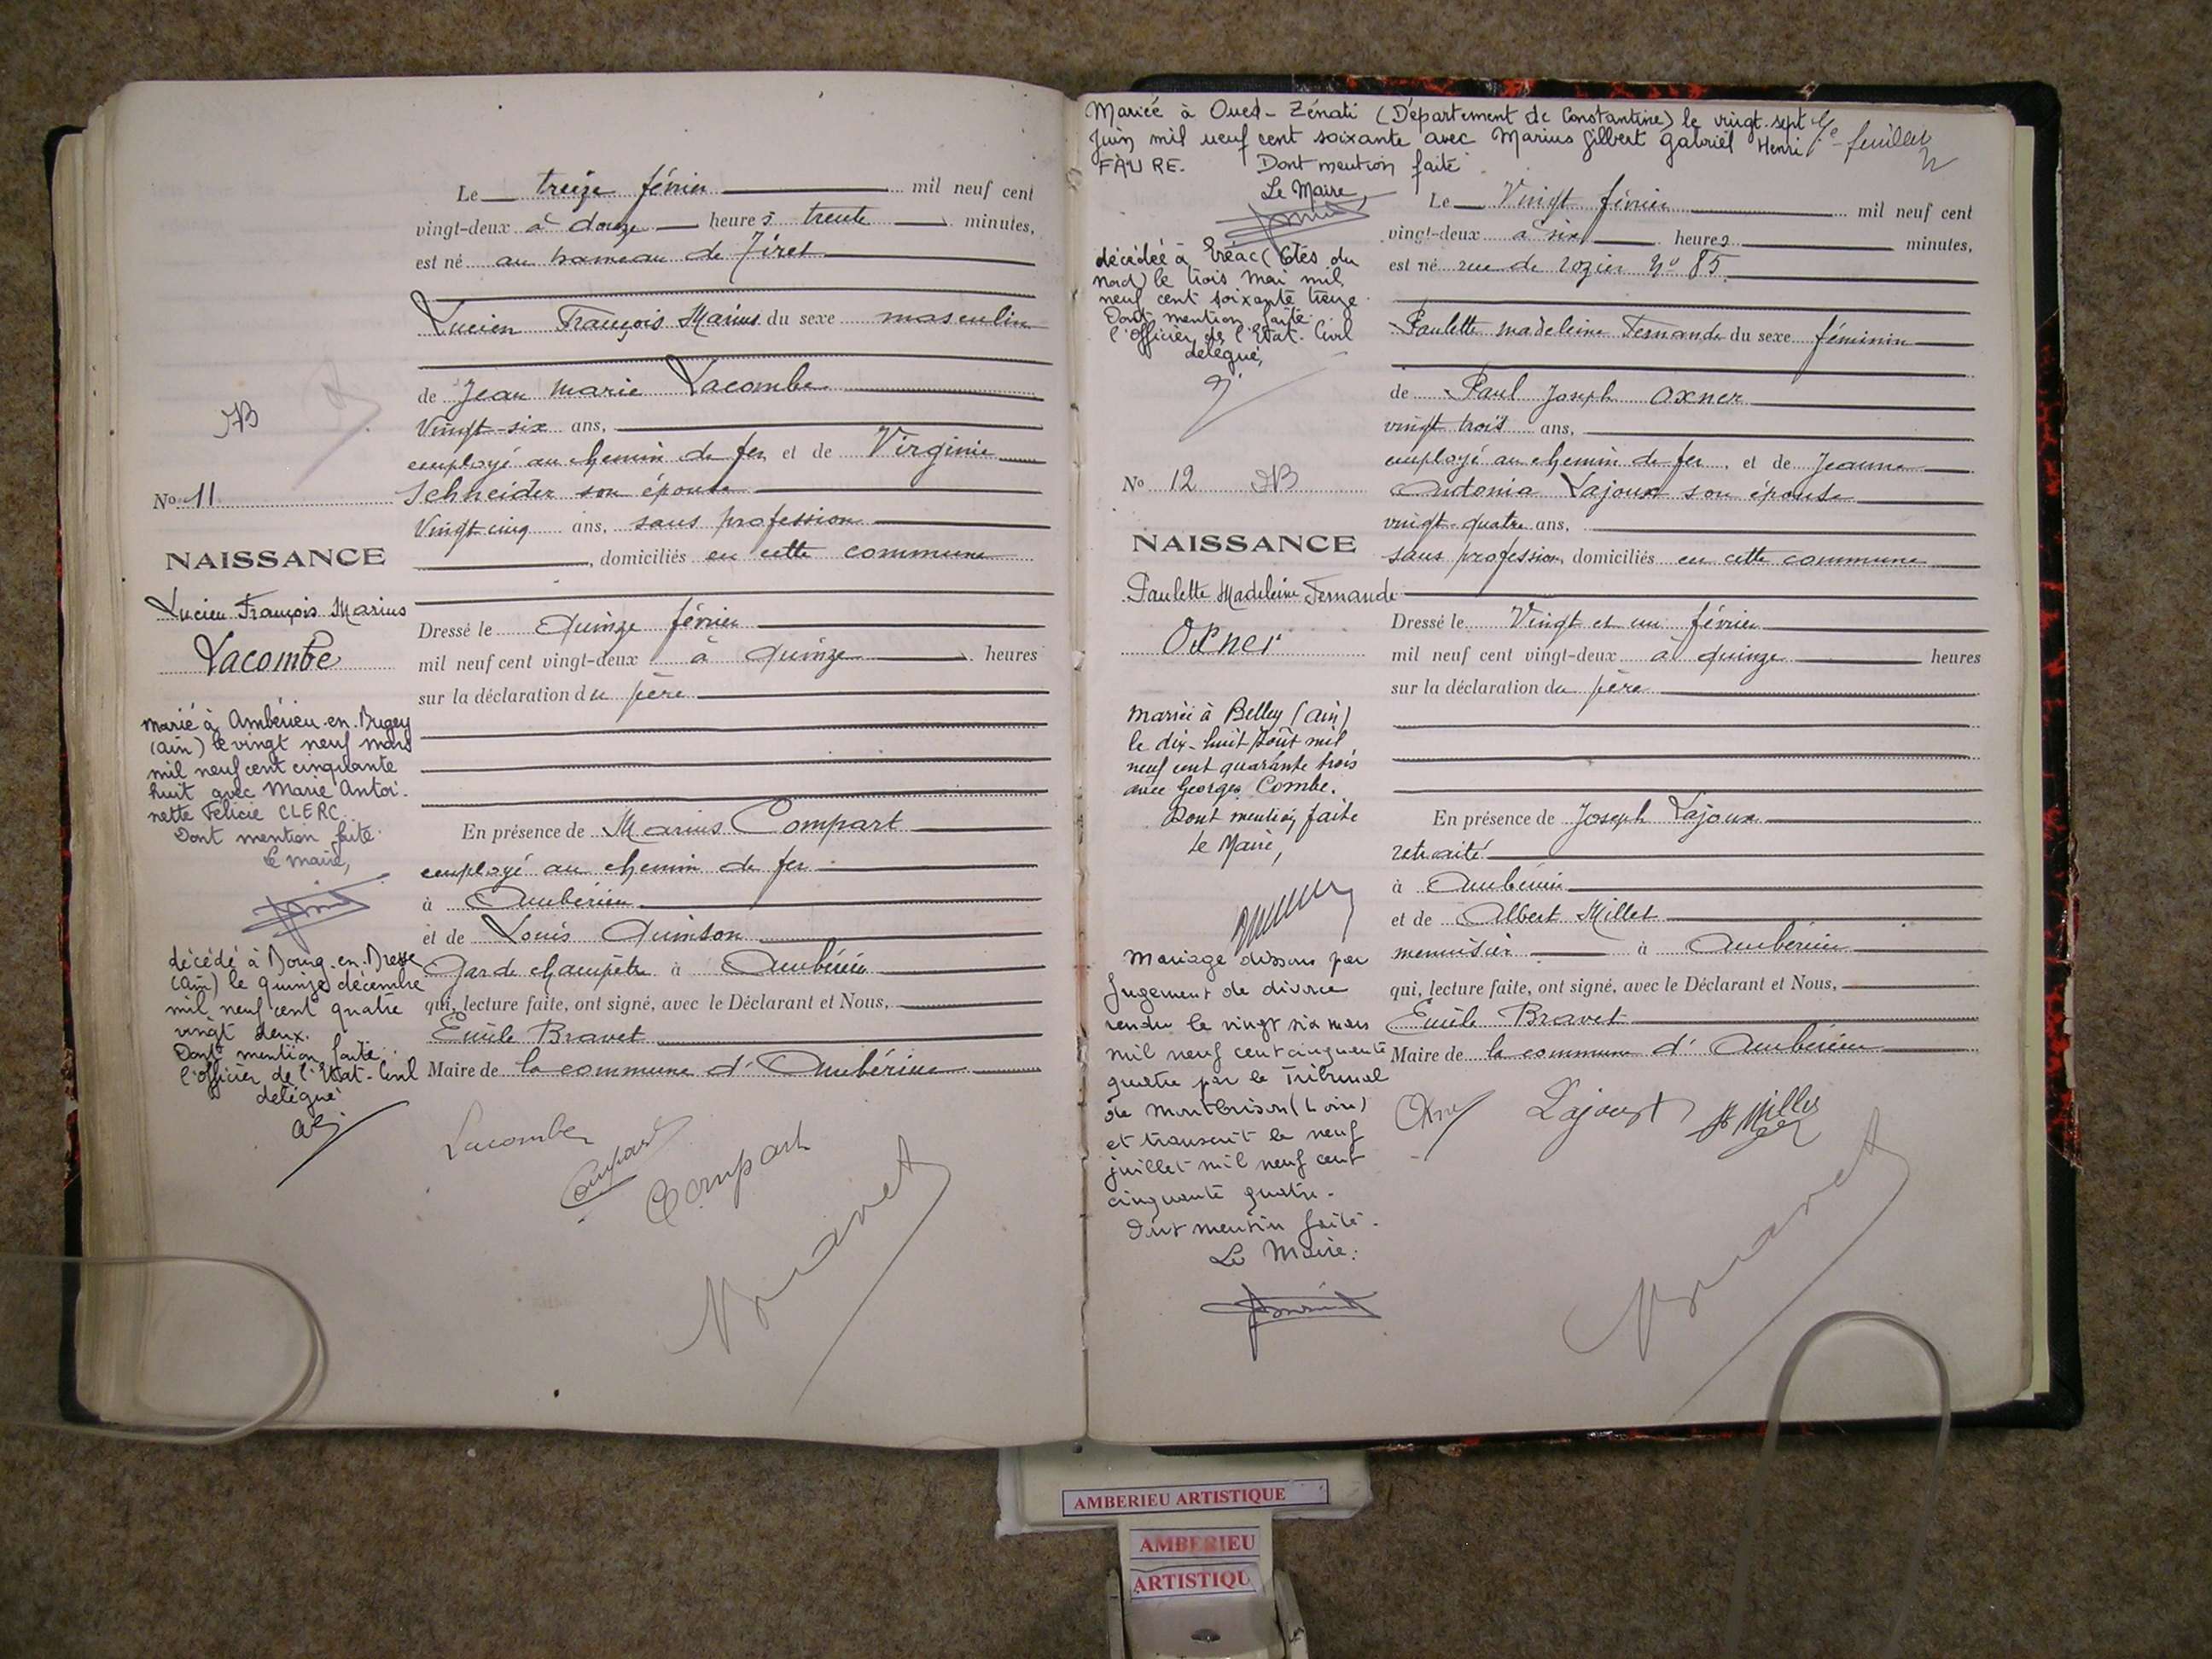 Le treize février mil neuf cent
vingt-deux à douze heures trente minutes,
est né au hameau de Tiret
Lucien François Marius du sexe masculin
de Jean Marie Lacombe
Vingt-six ans,
employé au chemin de fer, et de Virginie
Schneider son épouse
Vingt cinq ans, sans profession
, domiciliés en cette commune
Dressé le Quinze février
mil neuf cent vingt-deux à Quinze heures
sur la déclaration du père
En présence de Marius Compart
employé au chemin de fer
à Ambérieu
et de Louis Quinson
Garde champêtre à Ambérieu
qui, lecture faite, ont signé, avec le Déclarant et Nous,
Emile Bravet
Maire de la commune d'Ambérieu
Lacombe
Compart
Compart
Bravet
No 11
NAISSANCE
Lucien François Marius
Lacombe
marié à Ambérieu-en-Bugey
(ain) le vingt neuf mars
mil neuf cent cinquante
huit avec Marie Antoi-
nette Félicie CLERC.
Dont mention faite.
Le maire,
décédé à Bourg-en-Bresse
(ain) le quinze décembre
mil neuf cent quatre
vingt deux.
Dont mention faite.
l'Officier de l'Etat-Civil
délégué
Mariée à Oued-Zénati (Département de Constantine) le vingt-sept
Juin mil neuf cent soixante avec Marius Gilbert Gabriel Henri
FAURE. Dont mention faite
Le Maire,
feuillet
décédée à Tréac (Côtes du
nord) le trois mai mil
neuf cent soixante treize.
Dont mention faite.
l'Officier de l'Etat-Civil
délégué,
No 12
NAISSANCE
Paulette Madeleine Fernande
Oxner
mariée à Belley (ain)
le dix-huit Août mil
neuf cent quarante trois
avec Georges Combe.
Dont mention faite
Le Maire,
Mariage dissous par
Jugement de divorce
rendu le vingt six mars
mil neuf cent cinquante
quatre par le Tribunal
de Montbrison (Loire)
et transcrit le neuf
juillet mil neuf cent
cinquante quatre.
Dont mention faite.
Le Maire.
Le Vingt février mil neuf cent
vingt-deux à six heures minutes,
est né rue de rozier No 85
Paulette madeleine Fernande du sexe féminin
de Paul Joseph Oxner
vingt trois ans,
employé au chemin de fer, et de Jeanne
Antonia Lajoux son épouse
vingt-quatre ans,
sans profession, domiciliés en cette commune
Dressé le Vingt et un février
mil neuf cent vingt-deux à quinze heures
sur la déclaration du père
En présence de Joseph Lajoux
retraité
à Ambérieu
et de Albert Millet
menuisier à Ambérieu
qui, lecture faite, ont signé, avec le Déclarant et Nous,
Emile Bravet
Maire de la commune d'Ambérieu
Lajoux
Bravet
AMBERIEU ARTISTIQUE
AMBERIEU
ARTISTIQU